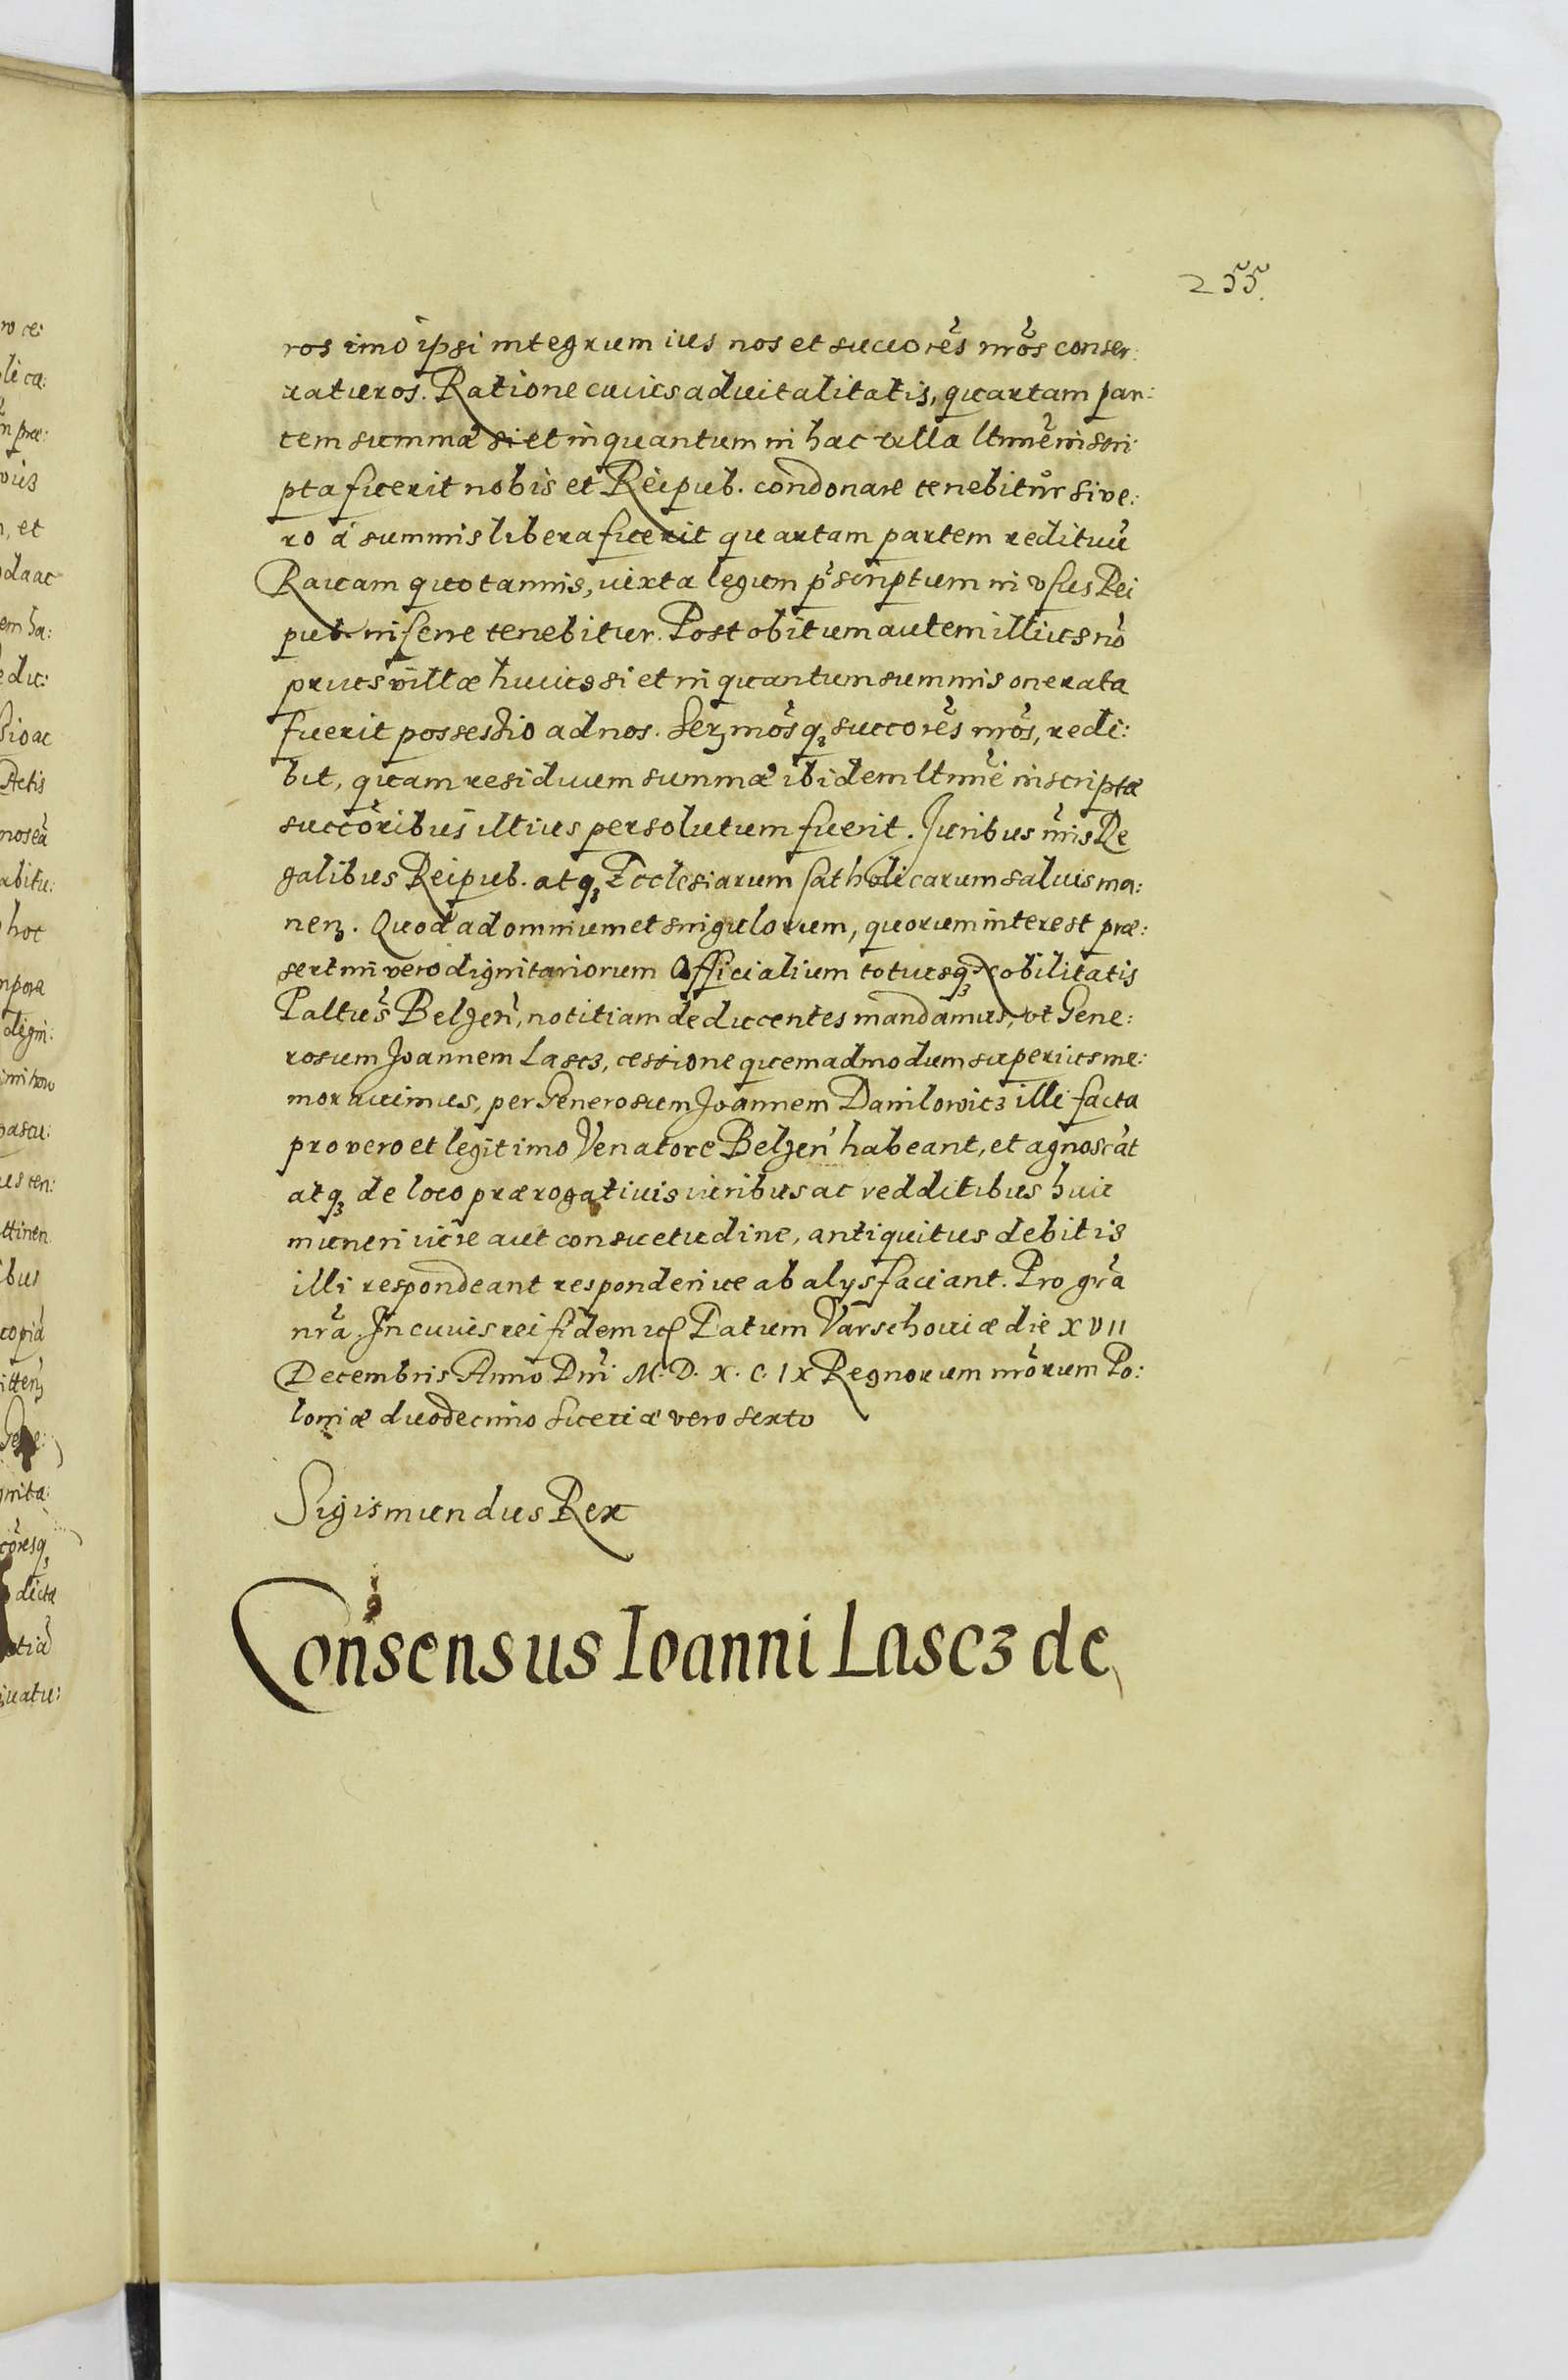 255.
ros imo ipsi integrum ius nos et succores nros conser:
uaturos. Ratione cuius aduitalitatis, quartam par:
tem summæ si et in quantum in hac uilla ltime inscri:
pta fuerit nobis et Reipub. condonare tenebitur si ve:
ro á summis libera fuerit quartam partem redituũ
Rauam quotannis, iuxta legum pscriptum in usus Rei
pub. inferre tenebitur. Post obitum autem illius nõ
prius villæ huius si et in quantum summis onerata
fuerit possessio ad nos. Serz mosqȝ succores nros, redi:
bit, quam residuum summæ ibidem ltime inscriptæ
succoribus illius persolutum fuerit. Juribus nris Re
galibus Reipub. atqȝ Ecclesiarum Catholicarum saluis ma:
nenȝ. Quod ad omnium et singulorum, quorum interest præ:
sertim vero dignitariorum Officialium totiusqȝ Nobilitatis
Paltus Belzen, notitiam deducentes mandamus, vt Gene:
rosum Joannem Lascz, cessione quemadmodum superius me:
morauimus, per Generosum Joannem Danilowicz illi facta
pro vero et legitimo Venatore Belzen habeant, et agnoscãt
atqȝ de loco prærogatiuis iuribus ac redditibus huic
muneri iure aut consuetudine, antiquitus debitis
illi respondeant responderiue ab alys faciant. Pro gra
nra. In cuius rei fidem Datum Varschouiæ die XVII
Decembris Anno Dni M. D. X. C. IX Regnorum nrorum Po:
loniæ duodecimo Sueciæ vero sexto
Sigismundus Rex
Consensus Ioanni Lascz de